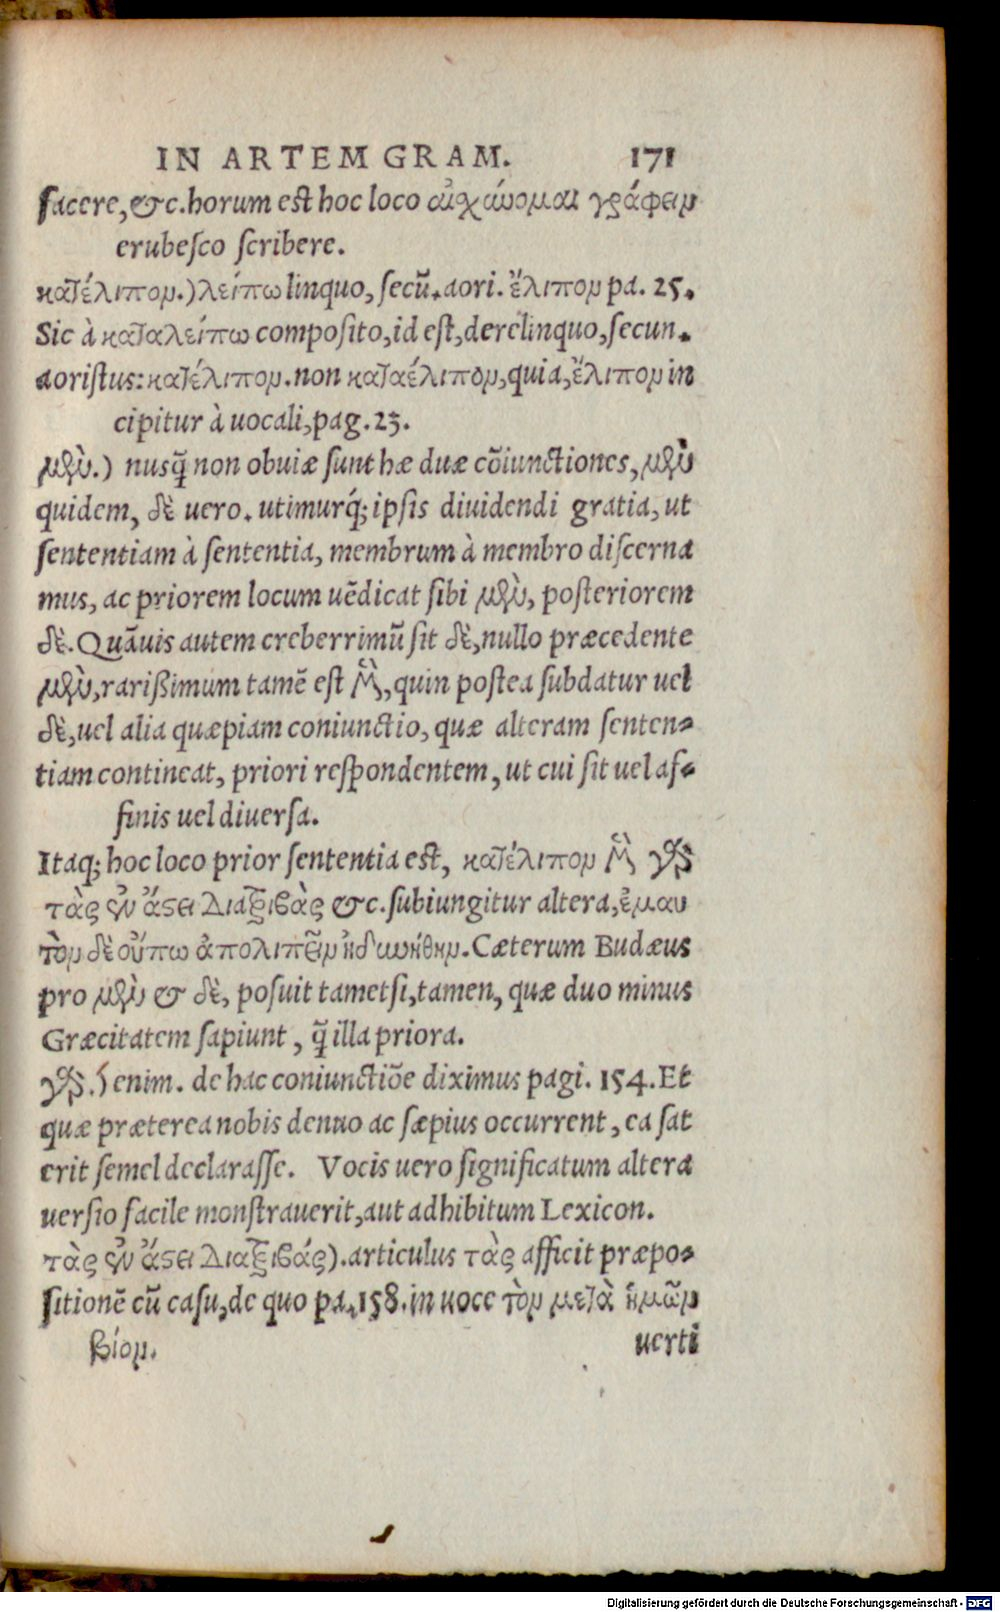 IN ARTEM GRAM. 171
facere, &c. horum est hoc loco αἰσχύνομαι γράφειν
erubesco scribere.
κατέλιπον.) λείπω linquo, secū. aori. ἔλιπον pa. 25.
Sic à καταλείπω composito, id est, derelinquo, secun.
aoristus: κατέλιπον. non καταέλιπον, quia, ἔλιπον in
cipitur à uocali, pag. 23.
μὲν.) nusq̃ non obuiæ sunt hæ duæ cōiunctiones, μὲν
quidem, δὲ uero. utimurq́; ipsis diuidendi gratia, ut
sententiam à sententia, membrum à membro discerna
mus, ac priorem locum uēdicat sibi μὲν, posteriorem
δὲ. Quāuis autem creberrimū sit δὲ, nullo præcedente
μὲν, rarißimum tamē est μὲν, quin postea subdatur uel
δὲ, uel alia quæpiam coniunctio, quæ alteram senten-
tiam contineat, priori respondentem, ut cui sit uel af-
finis uel diuersa.
Itaq; hoc loco prior sententia est, κατέλιπον μὲν γὰρ
τὰς ἐν ἄστει διατριβὰς &c. subiungitur altera, ἐμαυ
τὸν δὲ οὔπω ἀπολιπεῖν ἠδυνήθην. Cæterum Budæus
pro μὲν & δὲ, posuit tametsi, tamen, quæ duo minus
Græcitatem sapiunt, q̃ illa priora.
γὰρ.) enim. de hac coniunctiōe diximus pagi. 154. Et
quæ præterea nobis denuo ac sæpius occurrent, ea sat
erit semel declarasse. Vocis uero significatum altera
uersio facile monstrauerit, aut adhibitum Lexicon.
τὰς ἐν ἄστει διατριβάς). articulus τὰς afficit præpo-
sitionē cū casu, de quo pa. 158. in uoce τὸν μετὰ ἡμῶν
βίον. uerti
Digitalisierung gefördert durch die Deutsche Forschungsgemeinschaft - DFG